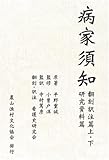 病家須知
翻刻訳注篇上・下
研究資料篇
原著 平野重誠
監修 小曽戸洋
監訳 中村篤彦
翻刻・訳注 看護史研究会
農山漁村文化協会